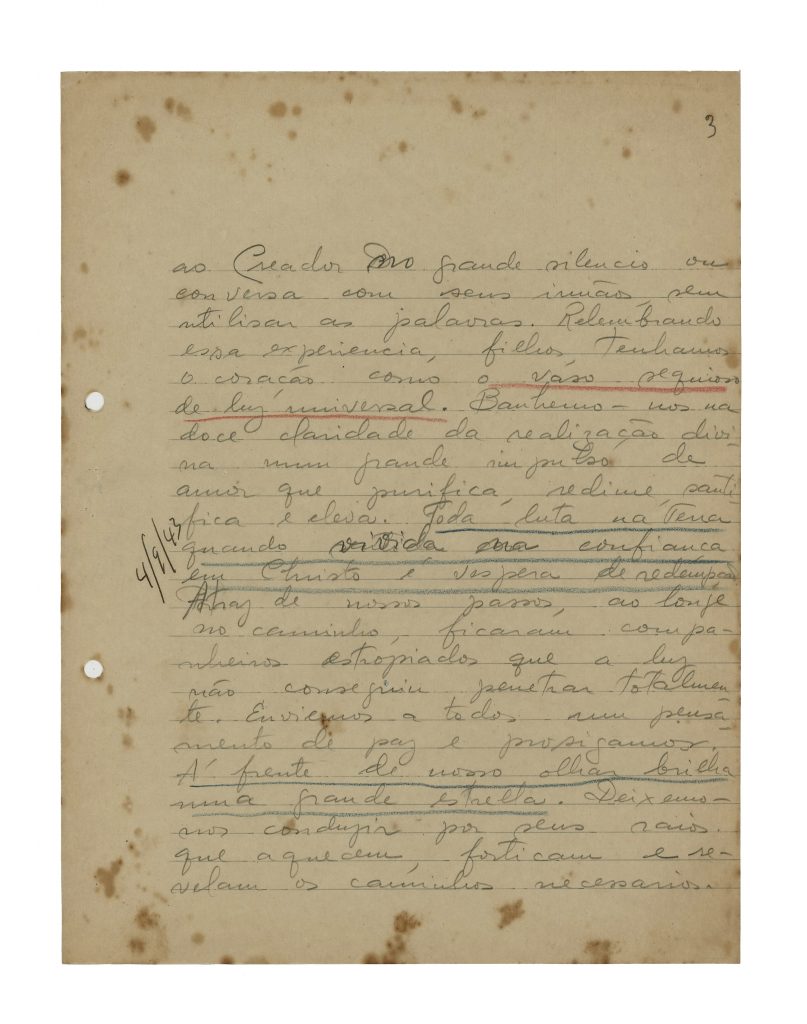 3
ao Creador no grande silencio ou
conversa com seus irmãos, sem
utilisar as palavras. Relembrando
essa experiencia, filhos, tenhamos
o coração como o váso sequioso
de luz universal. Banhemo-nos na
doce claridade da realização divi
na num grande impulso de
amor que purifica, redime, santi
fica e eleva. Toda luta na Terra
quando vivida na confiança
em Christo é vespera de redempção
Atraz de nossos passos, ao longe
no caminho, ficaram compa-
nheiros estropiados que a luz
não conseguiu penetrar totalmen
te. Enviemos a todos um pensa
mento de paz e prosigamos.
Á frente de nosso olhar brilha
uma grande estrella. Deixemo-
nos conduzir por seus raios.
que aquecem, forticam e re-
velam os caminhos necessarios.
4/9/43